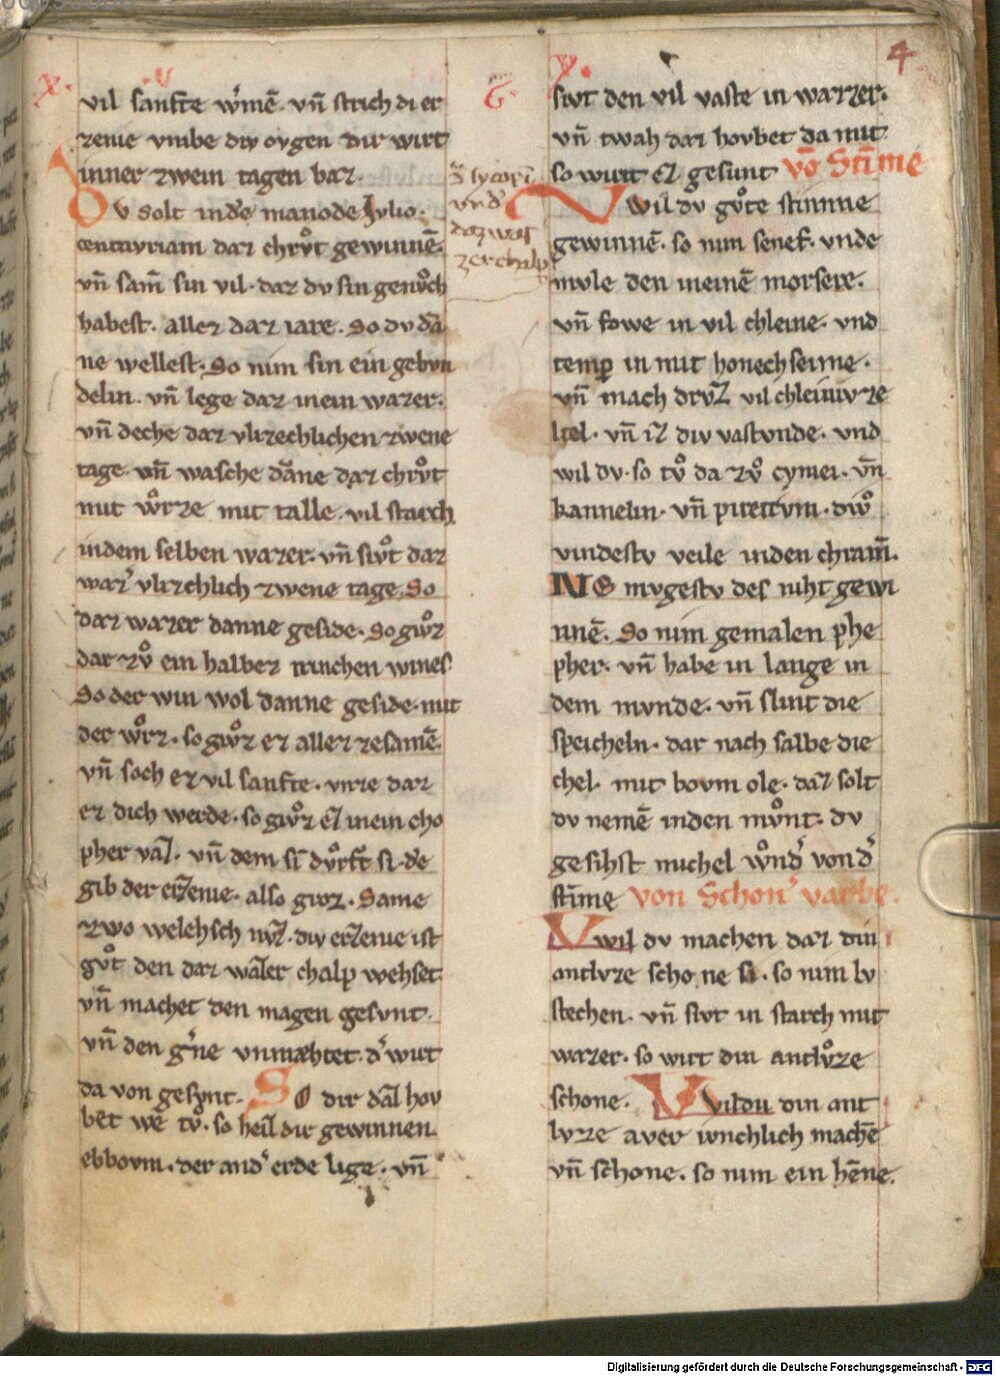 4
vil sanfte wͦmē. vn̄ strich di er
zenie vmbe div ovgen dir wirt
inner zwein tagen baz.
Dv solt in dē manode Jvlio.
centavriam daz chrv̊t gewinnē.
vn̄ sam̄ sin vil. daz dv sin genv̊ch
habest. allez daz iare. So dv dā
ne wellest. So nim sin ein gebvn
delin. vn̄ lege daz in ein wazer.
vn̄ deche daz vlizechlichen zwene
tage. vn̄ wasche dāne daz chrv̊t
mit wv̊rze mit talle. vil starch
in dem selben wazer. vn̄ sivt daz
waz̓ vlizchlich zwene tage. So
daz wazer danne geside. So giv̊z
dar zv̊ ein halbez trinchen wines.
So der win wol danne geside. mit
der wv̊rz. so giv̊z ez allez zesamē.
vn̄ soch ez vil sanfte. vnze daz
ez dich werde. so giv̊z ez in ein cho
pher vaz. vn̄ dem sī dv̊rft si. de
gib der erzenie. also groz. Same
zwo welchsch nvz. div erzenie ist
gv̊t den daz wazzer chalp wehset.
vn̄ machet den magen gesvnt.
vn̄ den g̓ne vnmæhtet. d̓ wirt
da von gesvnt. So dir daz hov
bet we tv̊. so heil dir gewinnen
ebbovm. der and̓ erde lige. vn̄
vnd̓
daz was
zerchalp
sivt den vil vaste in wazzer.
vn̄ twah daz hovbet da mit
so wirt ez gesunt vō Stīme
Wil dv gv̊te stimme
gewinnē. so nim senef. vnde
mvle den in einē morsere.
vn̄ fowe in vil chleine. vnd
temp̄ in mit honechseime.
vn̄ mach drvz vil chleiniv ze
lgel. vn̄ iz div vastvnde. vnd
wil dv. so tv̊ da zv̊ cymei. vn̄
kannelin. vn̄ piretrvm. div̊
vindestv veile in den chram̄.
NE mvgestv des niht gewi
nnē. So nim gemalen phe
pher. vn̄ habe in lange in
dem mvnde. vn̄ slint die
speicheln. dar nach salbe die
chel. mit bovm ole. daz solt
dv nemē in den mv̊nt. dv
gesihst michel wv̊nd̓ von d̓
stīme von Schon̓ varbe.
Wil dv machen daz din
antlvze schone si. so nim lv
stechen. vn̄ sivt in starch mit
wazer. so wirt din antlv̊ze
schone. Wildu din ant
lvze aver innchlich machē
vn̄ schone. so nim ein hēne.
Digitalisierung gefördert durch die Deutsche Forschungsgemeinschaft - DFG